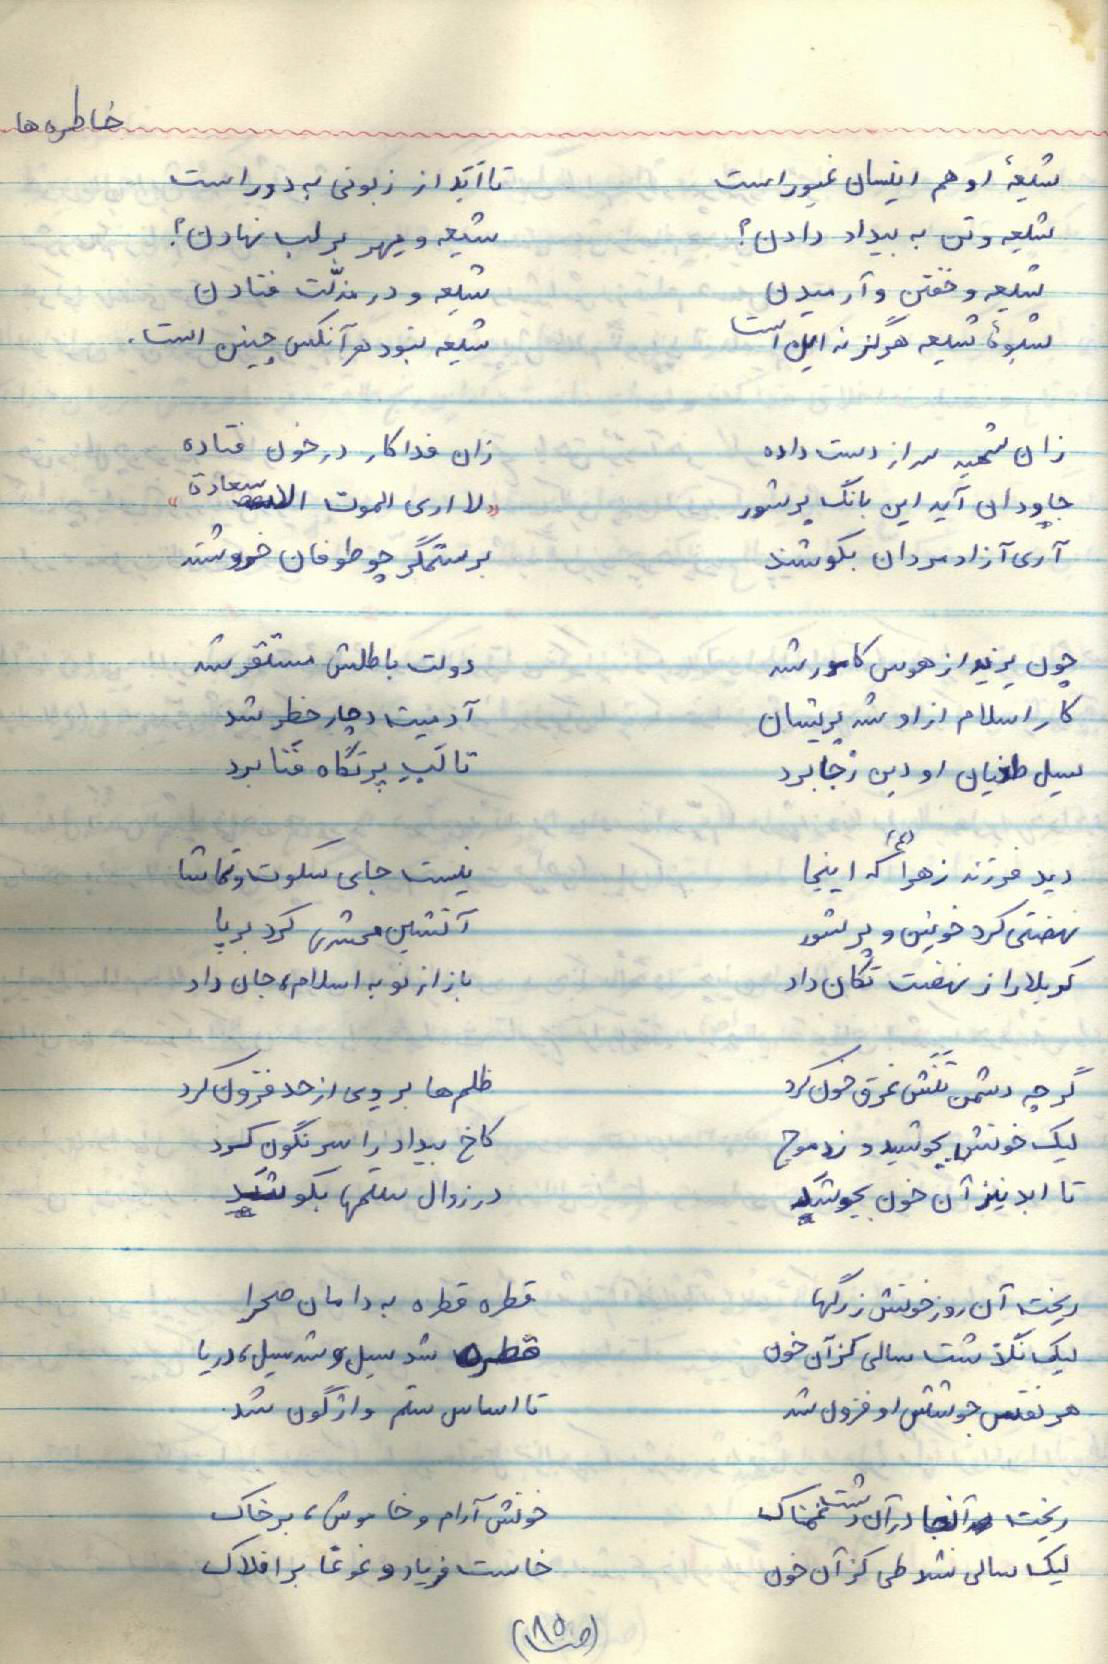 خاطره ها
شیعهٔ او هم اینسان غیور است تا ابَد از زبونی به دور است
شیعه و تن به بیداد دادن؟ شیعه و مهر بر لب نهادن؟
شیعه و خفتن و آرمیدن شیعه و در مذلّت فتادن
شیوهٔ شیعه هرگز نه این است شیعه نبود هر آنکس چنین است.
زان شهید سر از دست داده زان فداکار در خون فتاده
جاودان آید این بانگ پرشور «لا اری الموت الا سعادة»
آری آزاد مردان بکوشند بر ستمگر چو طوفان خروشند
چون یزید از هوس کامور شد دولت باطلش مستقر شد
کار اسلام از او شد پریشان آدمیت دچار خطر شد
سیل طغیان او دین ز جا برد تا لَبِ پرتگاه فَنا برد
دید فرزند زهرا (ع) که اینجا نیست جای سکوت و تماشا
نهضتی کرد خونین و پرشور آتشین محشری کرد برپا
کربلا را ز نهضت تکان داد باز از نو به اسلام، جان داد
گرچه دشمن تَنَش غرق خون کرد ظلم‌ها بر وی از حد فزون کرد
لیک خونش بجوشید و زد موج کاخ بیداد را سرنگون کرد
تا ابد نیز آن خون بجوشد در زوال ستمها بکوشد
ریخت آن روز خونش ز رگها قطره قطره به دامان صحرا
لیک نگذشت سالی کز آن خون قطره شد سیل و شد سیل، دریا
هر نفس جوشش او فزون شد تا اساس ستم واژگون شد.
ریخت در آن دشت غمناک خونش آرام و خاموش، بر خاک
لیک سالی نشد طی کز آن خون خاست فریاد و غوغا بر افلاک
(ص ۱۸۵)